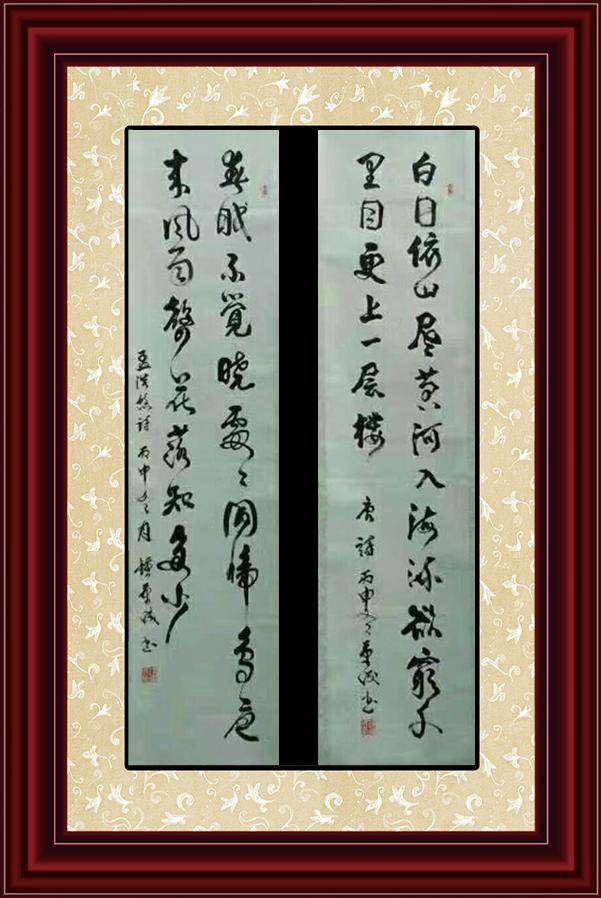 白日依山尽黄河入海流欲窮千
里目更上一层楼
唐詩 丙申 书
春眠不覺晓處〻闻啼鸟夜
来風雨聲花落知多少
孟浩然詩 丙申冬月 书